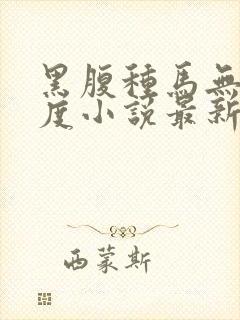 黑腹種馬無
度小説最新
西蒙斯